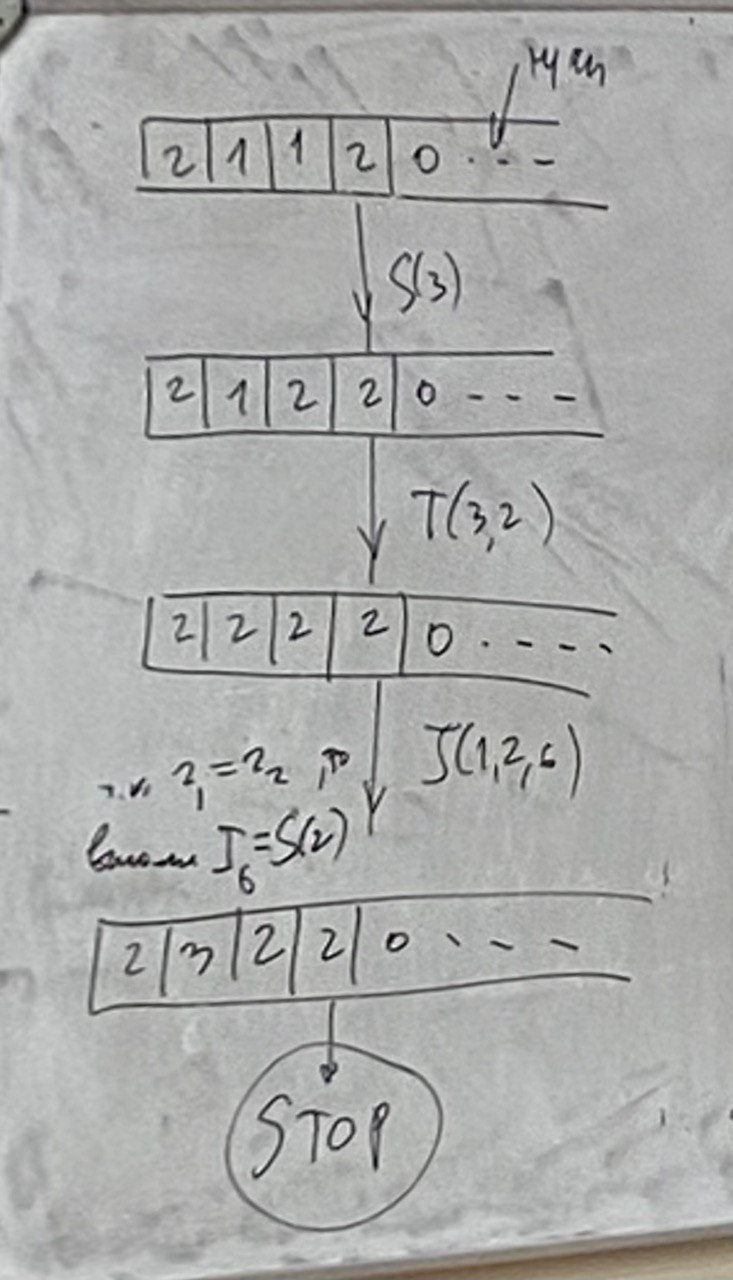 нули
2 1 1 2 0 . - -
S(3)
2 1 2 2 0 - - -
T(3,2)
2 2 2 2 0 . - - -
т.к. r₁=r₂, то J(1,2,6)
I₆=S(2)
2 3 2 2 0 - - -
STOP